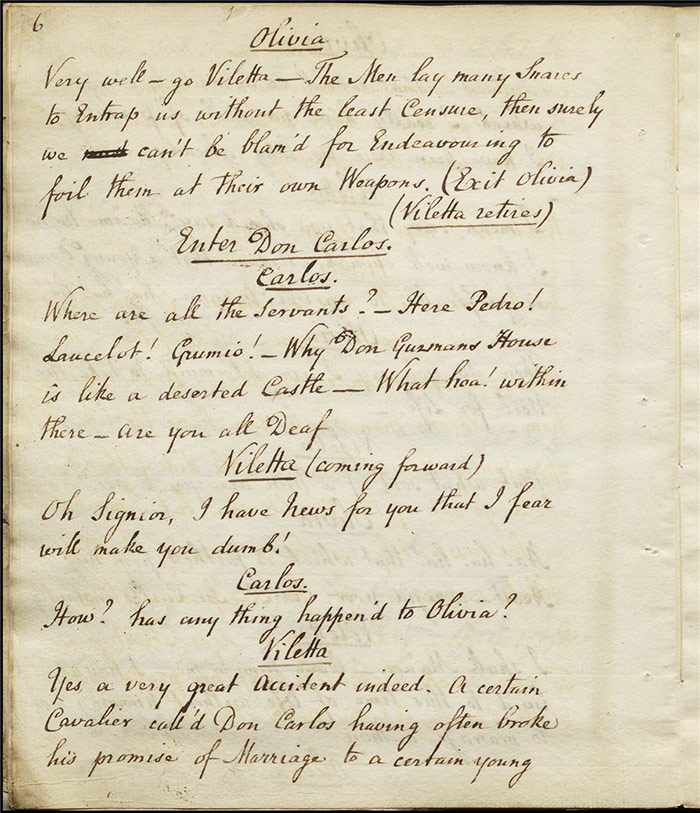 6
Olivia
Very well – go Viletta – The Men lay many Snares
to Entrap us without the least Censure, then surely
we can't be blam'd for Endeavouring to
foil them at their own Weapons. (Exit Olivia)
(Viletta retires)
Enter Don Carlos.
Carlos.
Where are all the Servants? – Here Pedro!
Laucelot! Grumio! – Why Don Guzmans House
is like a deserted Castle – What hoa! within
there – are you all Deaf
Viletta (coming forward)
Oh Signior, I have News for you that I fear
will make you dumb!
Carlos.
How? has any thing happen'd to Olivia?
Viletta
Yes, a very great Accident indeed. A certain
Cavalier call'd Don Carlos having often broke
his promise of Marriage to a certain young